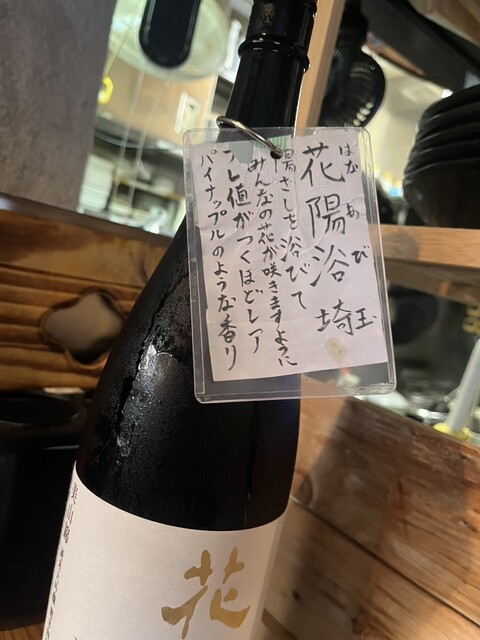 花陽浴
はなあび
埼玉
陽ざしを浴びて
みんなの花が咲きますように
プレ値がつくほどレア
パイナップルのような香り
花